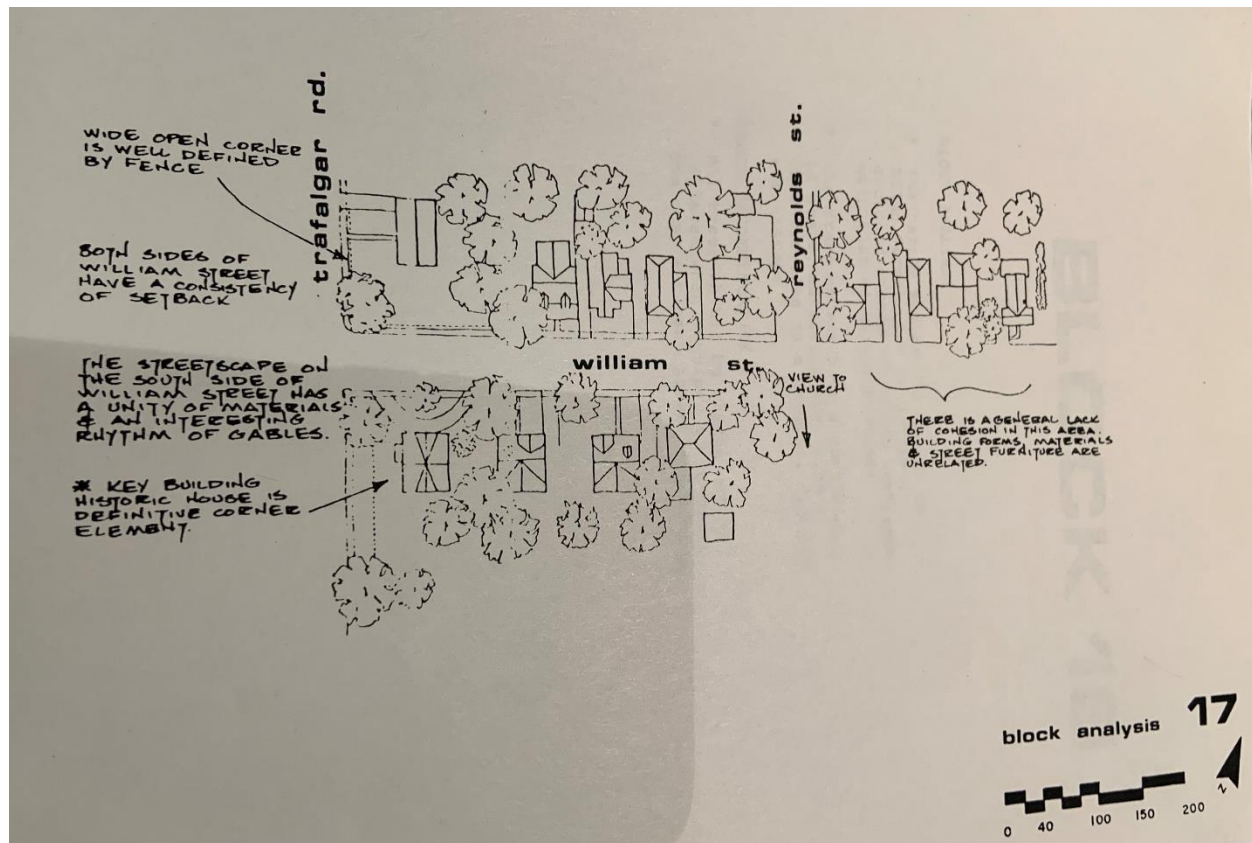 trafalgar rd.
WIDE OPEN CORNER
IS WELL DEFINED
BY FENCE
BOTH SIDES OF
WILLIAM STREET
HAVE A CONSISTENCY
OF SETBACK
THE STREETSCAPE ON
THE SOUTH SIDE OF
WILLIAM STREET HAS
A UNITY OF MATERIALS
& AN INTERESTING
RHYTHM OF GABLES.
* KEY BUILDING
HISTORIC HOUSE IS
DEFINITIVE CORNER
ELEMENT.
reynolds st.
william st.
VIEW TO
CHURCH
THERE IS A GENERAL LACK
OF COHESION IN THIS AREA.
BUILDING FORMS, MATERIALS
& STREET FURNITURE ARE
UNRELATED.
block analysis 17
0 40 100 150 200
N
BLOCK